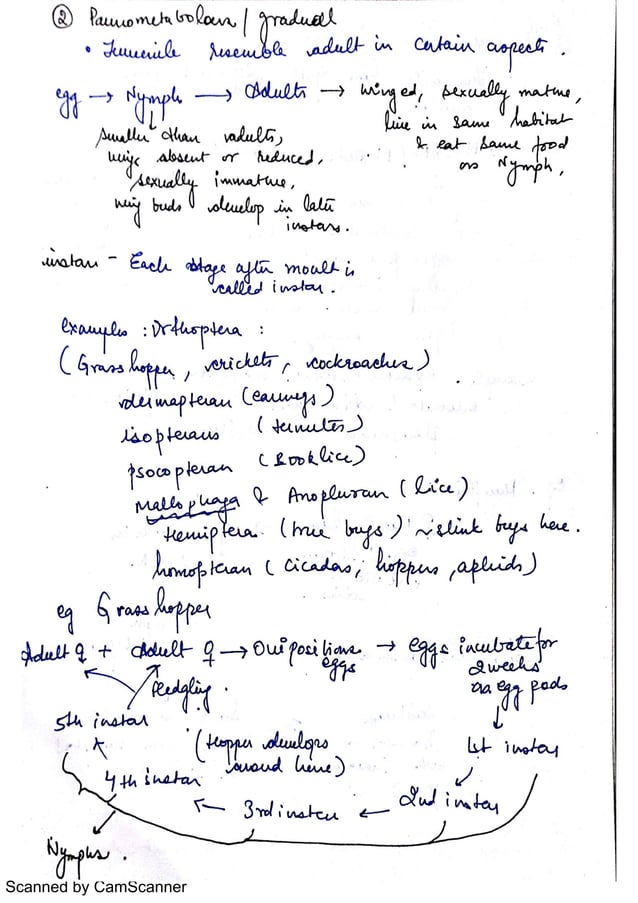 ② Paurometabolan / gradual
• Juvenile resemble adult in certain aspects.
egg → Nymph → Adults → Winged, sexually mature,
live in same habitat
& eat same food
as Nymph,
smaller than adults,
wings absent or reduced,
sexually immature,
wing buds develop in late
instars.
instar - Each stage after moult is
called instar.
examples : Orthoptera :
(Grasshopper, crickets, cockroaches)
dermapteran (earwigs)
isopterans (termites)
psocopteran (Booklice)
Mallophaga & Anopluran (lice)
Hemiptera (true bugs) ~ stink bugs here.
homopteran (cicadas, hoppers, aphids)
eg Grasshopper
Adult ♀ + Adult ♀ → Ovipositions → eggs incubate for
eggs 2 weeks
as egg pods
fledgling.
5th instar
(Hopper develops 1st instar
around here)
4th instar
← 3rd instar ← 2nd instar
Nymphs.
Scanned by CamScanner